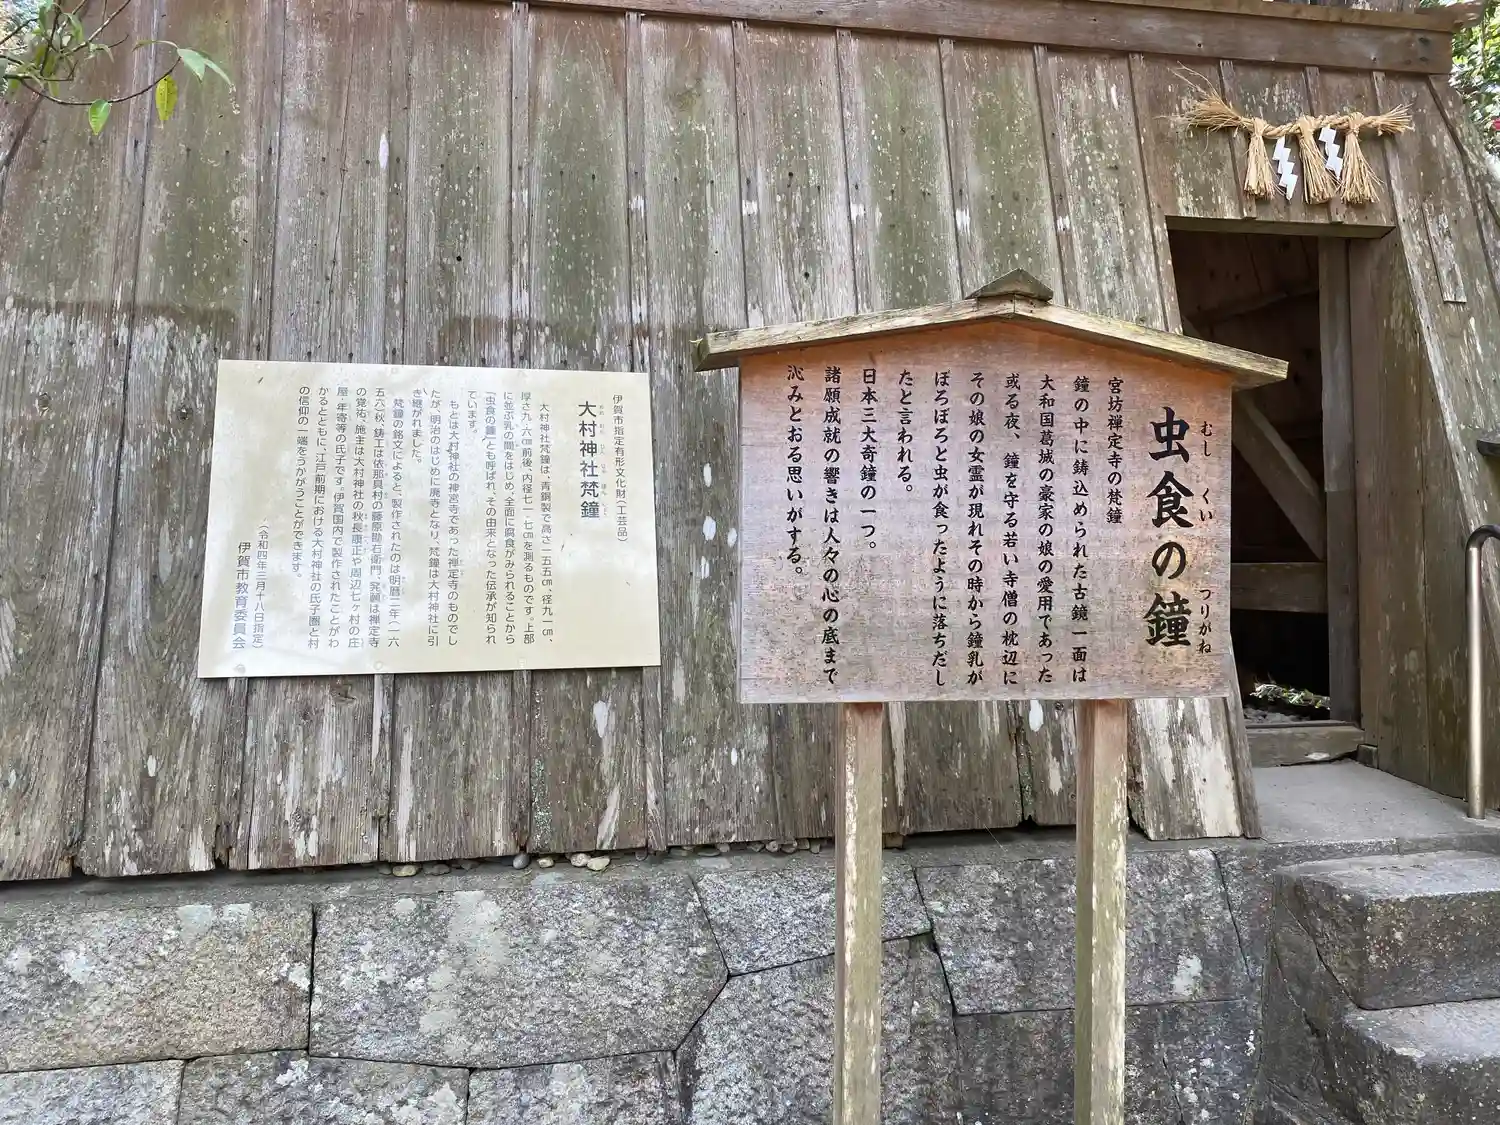 虫食の鐘
むし くい つりがね
宮坊禅定寺の梵鐘
鐘の中に鋳込められた古鏡一面は
大和国葛城の豪家の娘の愛用であった
或る夜、鐘を守る若い寺僧の枕辺に
その娘の女霊が現れその時から鐘乳が
ぼろぼろと虫が食ったように落ちだし
たと言われる。
日本三大奇鐘の一つ。
諸願成就の響きは人々の心の底まで
沁みとおる思いがする。
伊賀市指定有形文化財(工芸品)
大村神社梵鐘
大村神社梵鐘は、青銅製で高さ一五五㎝、径九一㎝、
厚さ九・六㎝前後、内径七一・七㎝を測るものです。上部
に並ぶ乳の間をはじめ、全面に腐食がみられることから
「虫食の鐘」とも呼ばれ、その由来となった伝承が知られ
ています。
もとは大村神社の神宮寺であった禅定寺のものでし
たが、明治のはじめに廃寺となり、梵鐘は大村神社に引
き継がれました。
梵鐘の銘文によると、製作されたのは明暦二年(一六
五六)秋、鋳工は依那具村の藤原勘右衛門、発願は禅定寺
の覚祐、施主は大村神社の秋長康正や周辺七ヶ村の庄
屋・年寄等の氏子です。伊賀国内で製作されたことがわ
かるとともに、江戸前期における大村神社の氏子圏と村
の信仰の一端をうかがうことができます。
(令和四年三月十八日指定)
伊賀市教育委員会